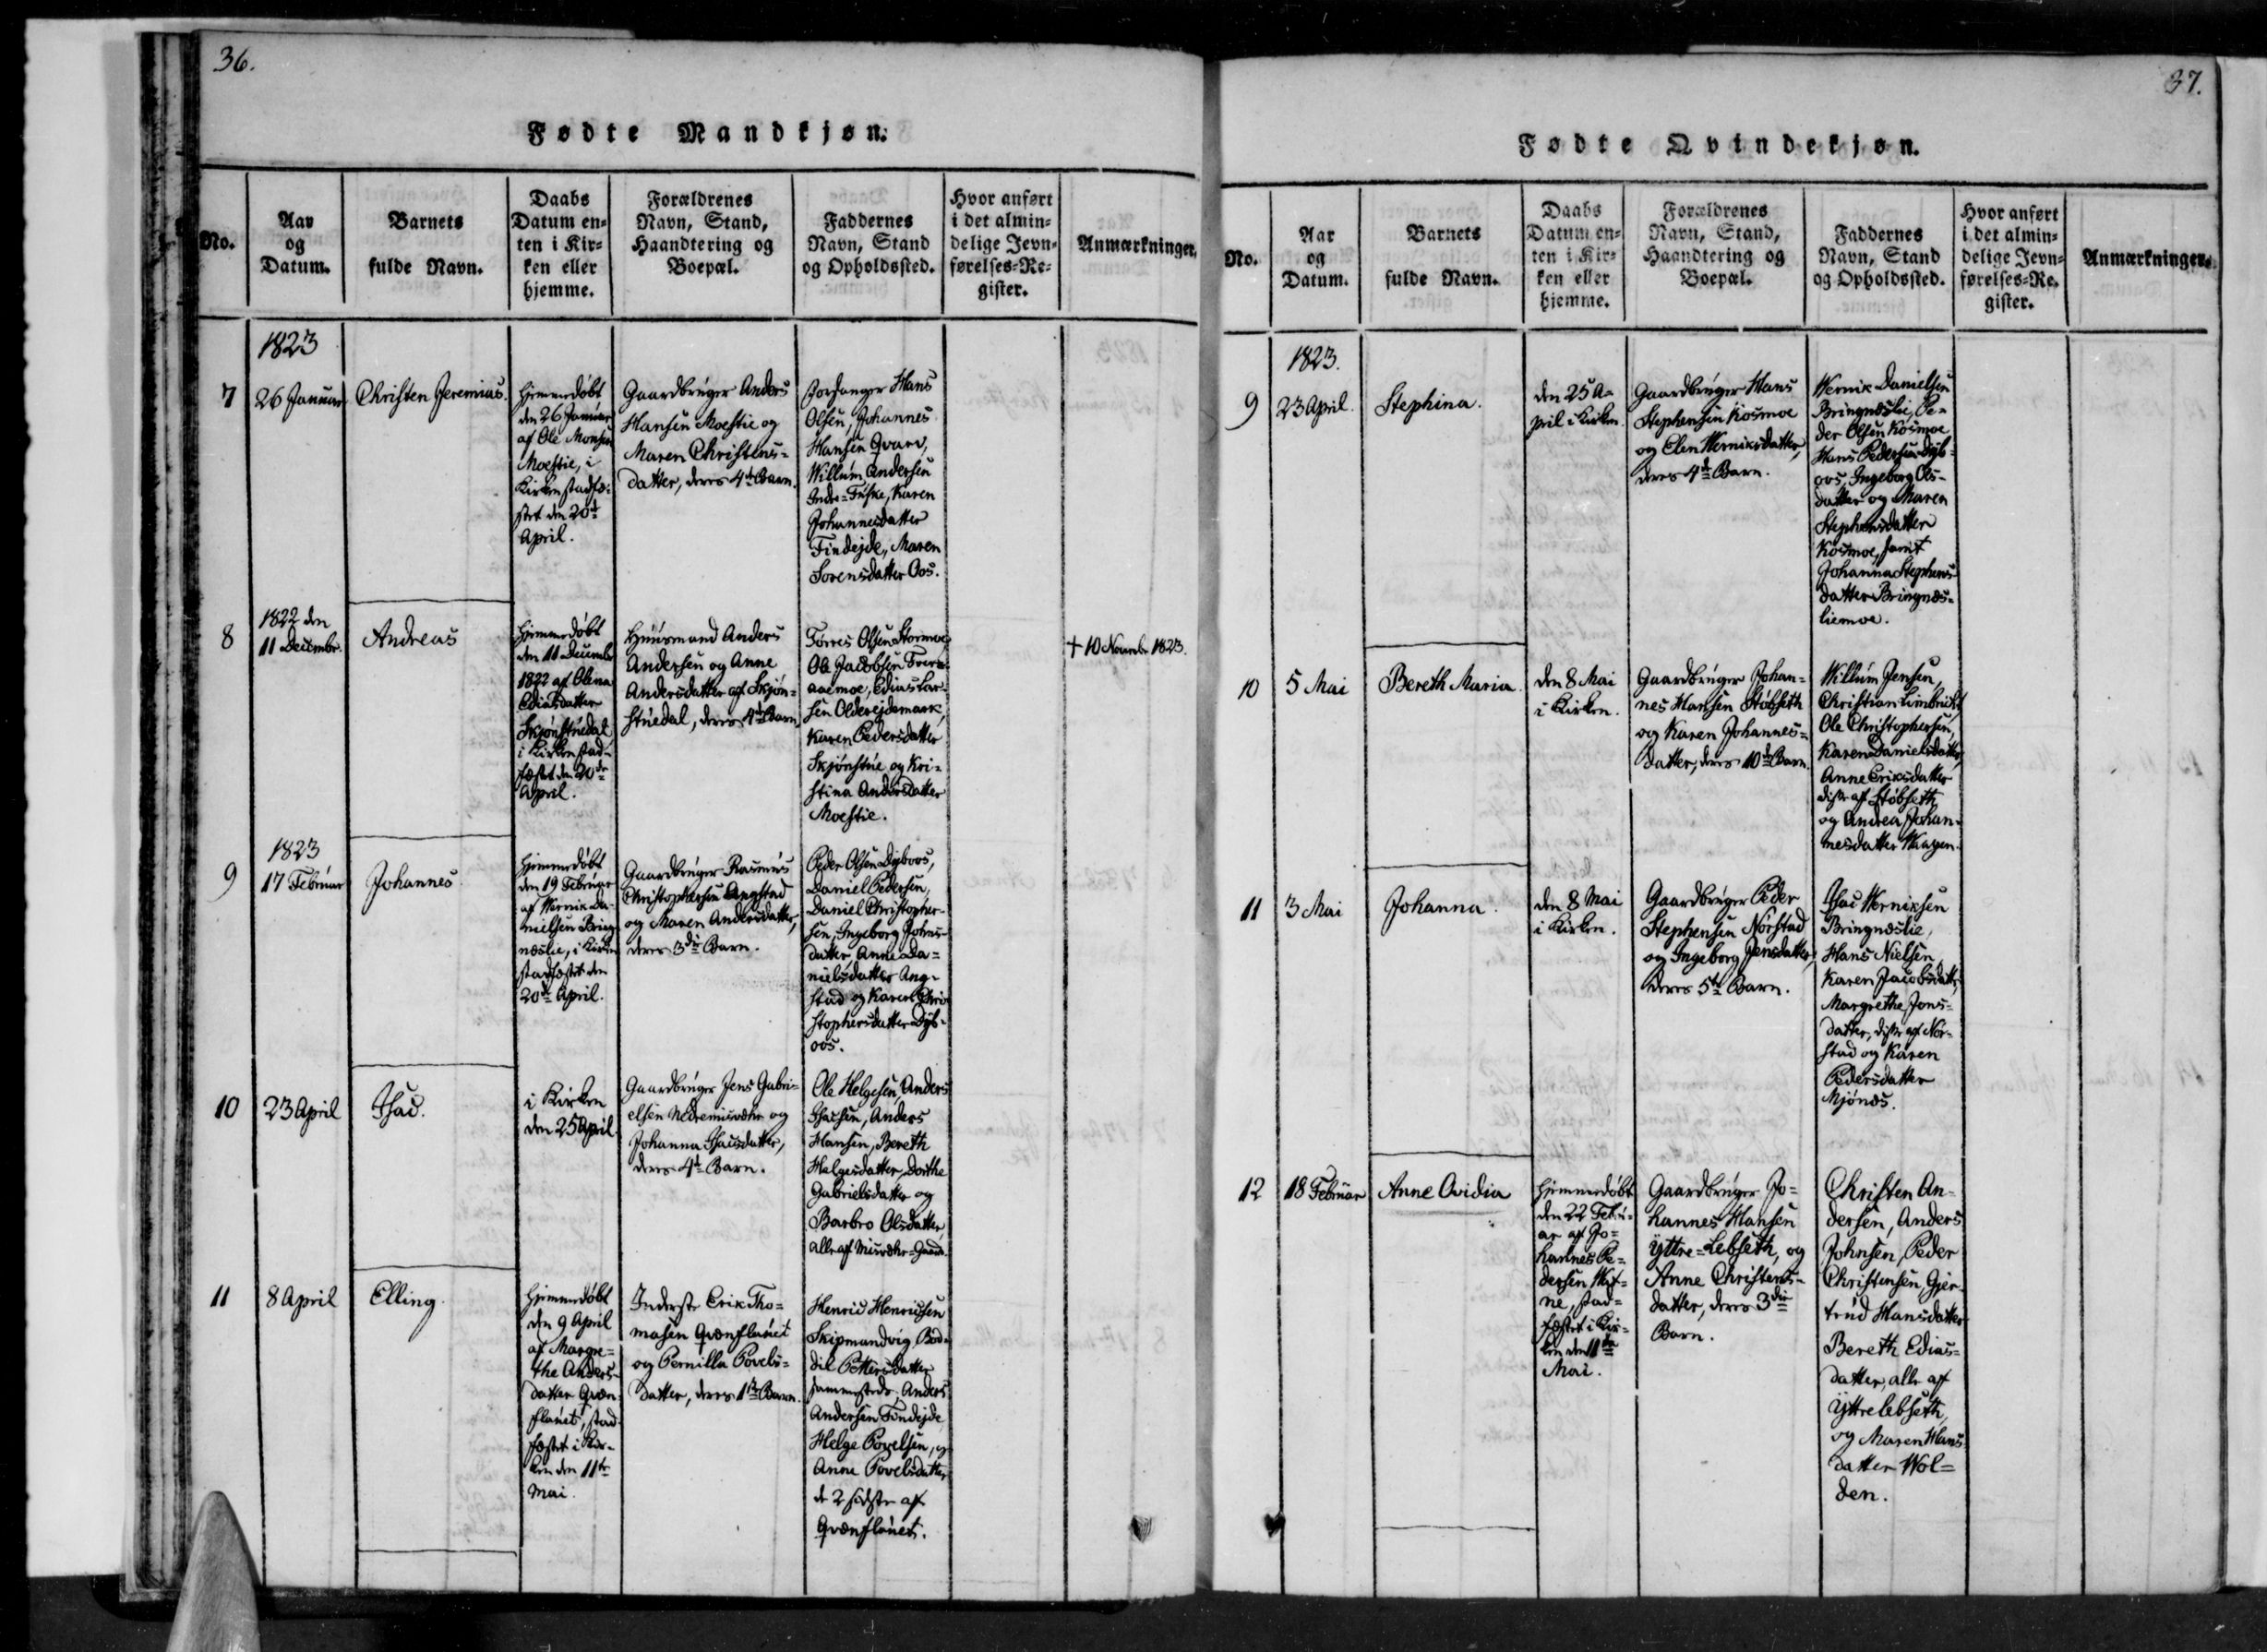 36.
Fødte Mandkjøn.
No.
Aar
og
Datum.
Barnets
fulde Navn.
Daabs
Datum en=
ten i Kir=
ken eller
hjemme.
Forældrenes
Navn, Stand,
Haandtering og
Boepæl.
Faddernes
Navn, Stand
og Opholdssted.
Hvor anført
i det almin=
delige Jevn=
førelses=Re=
gister.
Anmærkninger.
1823
7
26 Januar
Christen Jeremias.
hjemmedøbt
den 26 Januar
af Ole Monsen
Moestie, i
Kirken stadfæ=
stet den 20de
April.
Gaardbruger Anders
Hansen Moestie og
Maren Christens=
datter, deres 4de Barn.
Forsanger Hans
Olsen, Johannes
Hansen Qvarv,
Willum Andersen
Indre=Fuske, Karen
Johannesdatter
Findejde, Maren
Sorensdatter Oos.
8
1822 den
11 Decembr.
Andreas
hjemmedøbt
den 11 Decembr
1822 af Olena
Ediasdatter
Skjønstuedal
i Kirken stad=
fæstet den 20de
April.
Huusmand Anders
Andersen og Anne
Andersdatter af Skjøn=
stuedal, deres 4de Barn.
Torres Olsen Stormoe,
Ole Jacobsen Tverr=
aaemoe, Edias Lar=
sen Olderejdemark,
Karen Pedersdatter
Skjønstue og Kri=
stina Andersdatter
Moestie.
+ 10 Novembr 1823.
9
1823
17 Februar
Johannes
hjemmedøbt
den 19 Februar
af Wernik Da=
nielsen Bring=
næslie, i Kirken
stadfæstet den
20de April.
Gaardbruger Rasmus
Christophersen Angstad
og Maren Andersdatter,
deres 3die Barn.
Peder Olsen Dyboos,
Daniel Pedersen,
Daniel Christopher=
sen, Ingeborg Johns=
datter, Anne Da=
nielsdatter Ang=
stad og Karen Chri=
stophersdatter Dyb=
oos.
10
23 April
Isac.
i Kirken
den 25 April
Gaardbruger Jens Gabri=
elsen Nedremisvær og
Johanna Isacsdatter,
deres 4de Barn.
Ole Helgesen, Anders
Isacsen, Anders
Hansen, Bereth
Helgesdatter, Dorthe
Gabrielsdatter og
Barbro Olsdatter,
alle af Misvær=Gaard.
11
8 April
Elling.
hjemmedøbt
den 9 April
af Margre=
the Anders=
datter Qvæn=
flaaet, stad=
fæstet i Kir=
ken den 11te
Mai.
Inderste Erik Tho=
masen Qvænflaaet
og Pernilla Povels=
datter, deres 1ste Barn.
Henric Henricsen
Skipmandvig, Bod=
dil Pettersdatter
sammesteds, Anders
Andersen Findejde
Helge Povelsen, og
Anne Povelsdatter,
de 2 sidste af
Qvænflaaet.
37.
Fødte Qvindekjøn.
No.
Aar
og
Datum.
Barnets
fulde Navn.
Daabs
Datum en=
ten i Kir=
ken eller
hjemme.
Forældrenes
Navn, Stand,
Haandtering og
Boepæl.
Faddernes
Navn, Stand
og Opholdssted.
Hvor anført
i det almin=
delige Jevn=
førelses=Re.
gister.
Anmærkninger.
1823.
9
23 April.
Stephina.
den 25 A=
pril i Kirken.
Gaardbruger Hans
Stephensen Kosmoe
og Elen Werniksdatter,
deres 4de Barn.
Wernik Danielsen
Bringnæslie, Pe=
der Olsen Kosmoe
Hans Pedersen Dyb=
oos, Ingeborg Ols=
datter og Maren
Stephensdatter
Kosmoe, samt
Johanna Stephens=
datter Bringnæs=
liemoe.
10
5 Mai
Bereth Maria.
den 8 Mai
i Kirken.
Gaardbruger Johan=
nes Hansen Støbseth
og Karen Johannes=
datter, deres 10de Barn.
Willum Jensen,
Christian Limbrikt
Ole Christophersen,
Karen Danielsdatter,
Anne Eriksdatter
disse af Støbseth
og Andrea Johan=
nesdatter Waagen.
11
3 Mai
Johanna.
den 8 Mai
i Kirken.
Gaardbruger Peder
Stephensen Norstad
og Ingeborg Jensdatter,
deres 5te Barn.
Isac Werniksen
Bringnæslie,
Hans Nielsen,
Karen Jacobsdatter,
Margrethe Jons=
datter, disse af Nor=
stad og Karen
Pedersdatter
Mjønæs.
12
18 Februar
Anne Ovidia
hjemmedøbt
den 22 Febru=
ar af Jo=
hannes Pe=
dersen
stad=
fæstet i Kir=
ken den 11te
Mai.
Gaardbruger Jo=
hannes Hansen
Yttre=Lebseth, og
Anne Christens=
datter, deres 3die
Barn.
Christen An=
dersen, Anders
Johnsen, Peder
Christensen, Gjer=
trud Hansdatter
Bereth Edias=
datter, alle af
Yttrelebseth,
og Maren Hans=
datter Wol=
den.